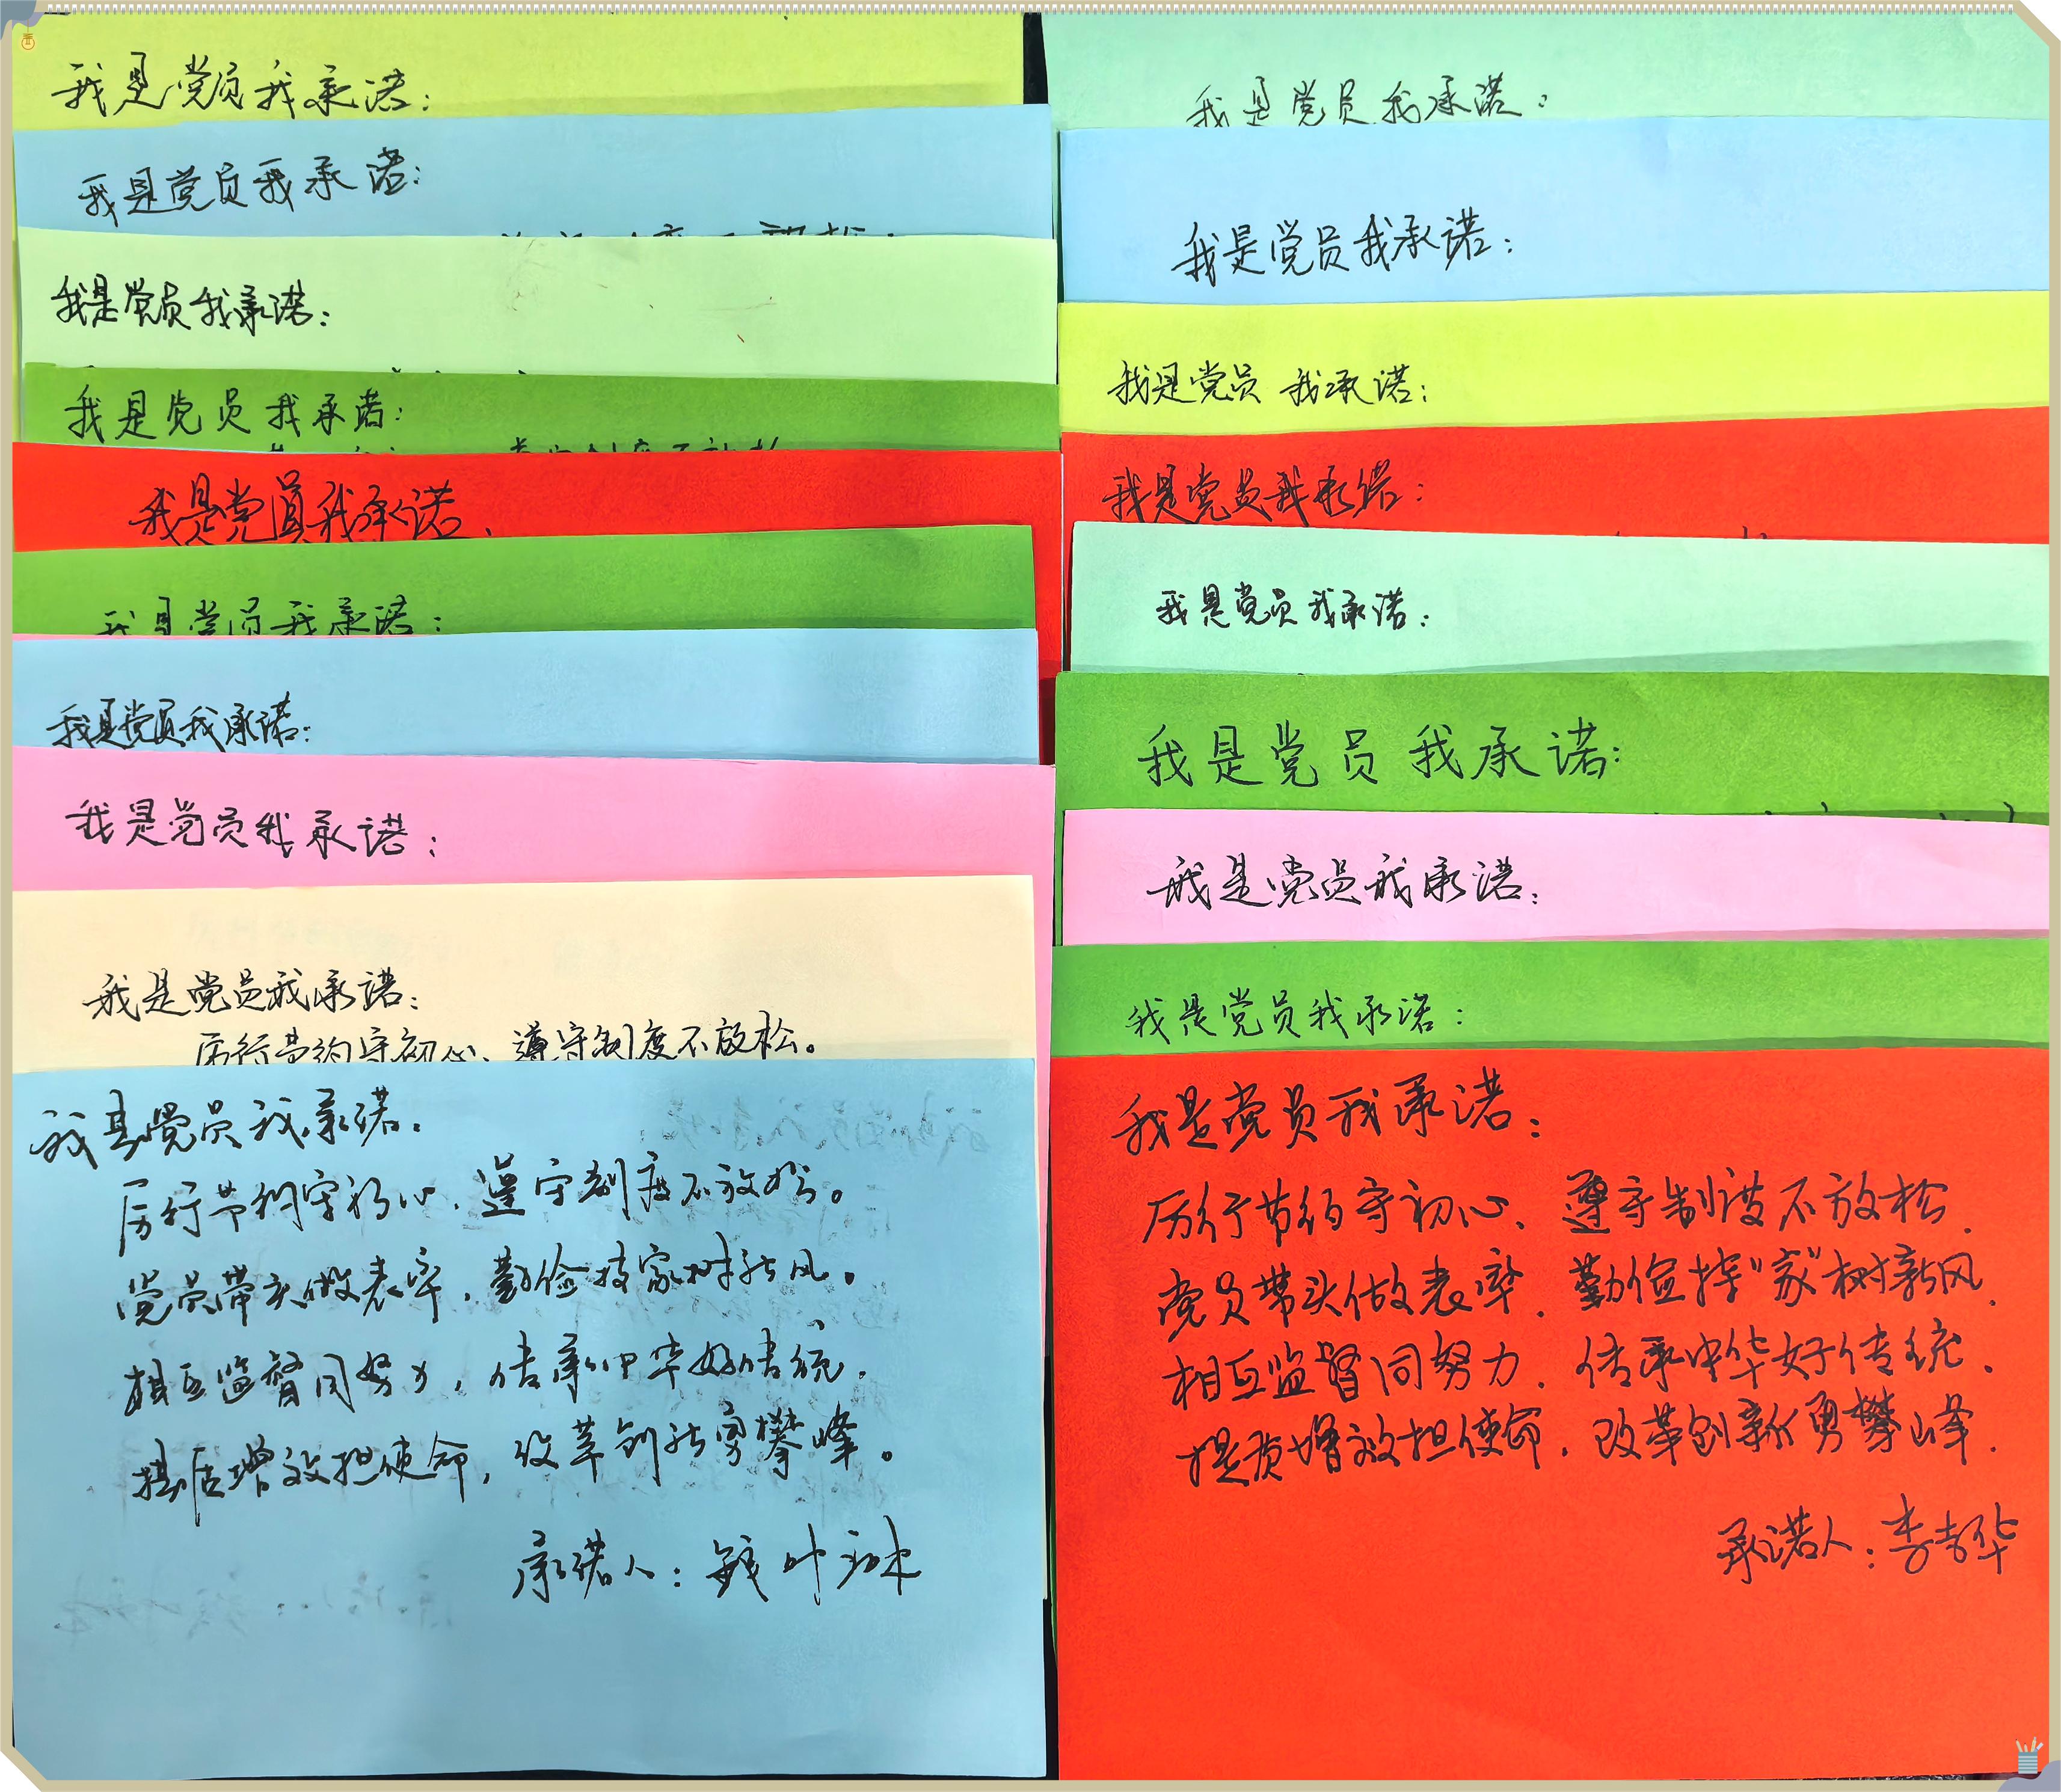 我是党员我承诺：
我是党员我承诺：
我是党员我承诺：
我是党员我承诺：
我是党员我承诺.
我是党员我承诺：
我是党员我承诺：
我是党员我承诺：
我是党员我承诺：
厉行节约守初心、遵守制度不放松。
我是党员我承诺：
厉行节约守初心，遵守制度不放松。
党员带头做表率，勤俭持家树新风。
相互监督同努力，传承中华好传统.
提质增效担使命，改革创新勇攀峰。
承诺人：钱叶
我是党员我承诺：
我是党员我承诺：
我是党员 我承诺：
我是党员我承诺：
我是党员我承诺：
我是党员 我承诺：
我是党员我承诺：
我是党员我承诺：
我是党员我承诺：
厉行节约守初心、遵守制度不放松.
党员带头做表率.勤俭持"家"树新风.
相互监督同努力.传承中华好传统.
提质增效担使命.改革创新勇攀峰.
承诺人：李吉华